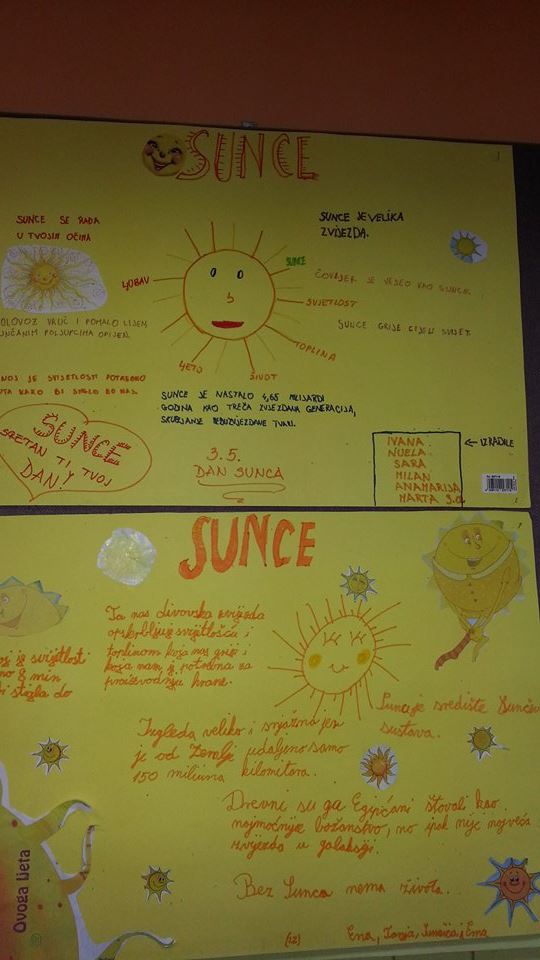 SUNCE
SUNCE SE RAĐA
U TVOJIM OČIMA
SUNCE JE VELIKA
ZVIJEZDA.
LJUBAV
SUNCE
SVJETLOST
TOPLINA
ŽIVOT
LJETO
ČOVJEK JE VESEO KAO SUNCE.
SUNCE GRIJE CIJELI SVIJET.
OLOVOZ VRUĆ I POMALO LIJEN
UNČANIM POLJUPCIMA OPIJEN.
NOJ JE SVIJETLOSTI POTREBNO
UTA KAKO BI STIGLO DO NAS.
SUNCE JE NASTALO 4,65 MILIJARDI
GODINA KAO TREĆA ZVJEZDANA GENERACIJA,
SKUPLJANJE TVARI.
ŠUNCE
SRETAN TI, TVOJ
DAN!
3.5.
DAN SUNCA
IVANA
NUELA
SARA
MILAN
ANAMARIJA
MARTA
← IZRADILE
SUNCE
Ta nas divovska zvijezda
opskrbljuje svjetlošću i
toplinom koja nas grije i
koja nam je potrebna za
proizvodnju hrane.
oj je svijetlosti
no 8 min
bi stigla do
Sunce je središte Sunčev
sustava.
Izgleda veliko i snažno jer
je od Zemlje udaljeno samo
150 milijuna kilometara.
Drevni su ga Egipćani štovali kao
najmoćnije božanstvo, no ipak nije najveća
zvijezda u galaksiji.
Bez Sunca nema života..
Ovoga ljeta
(12)
Ena, Tonja, i Ema